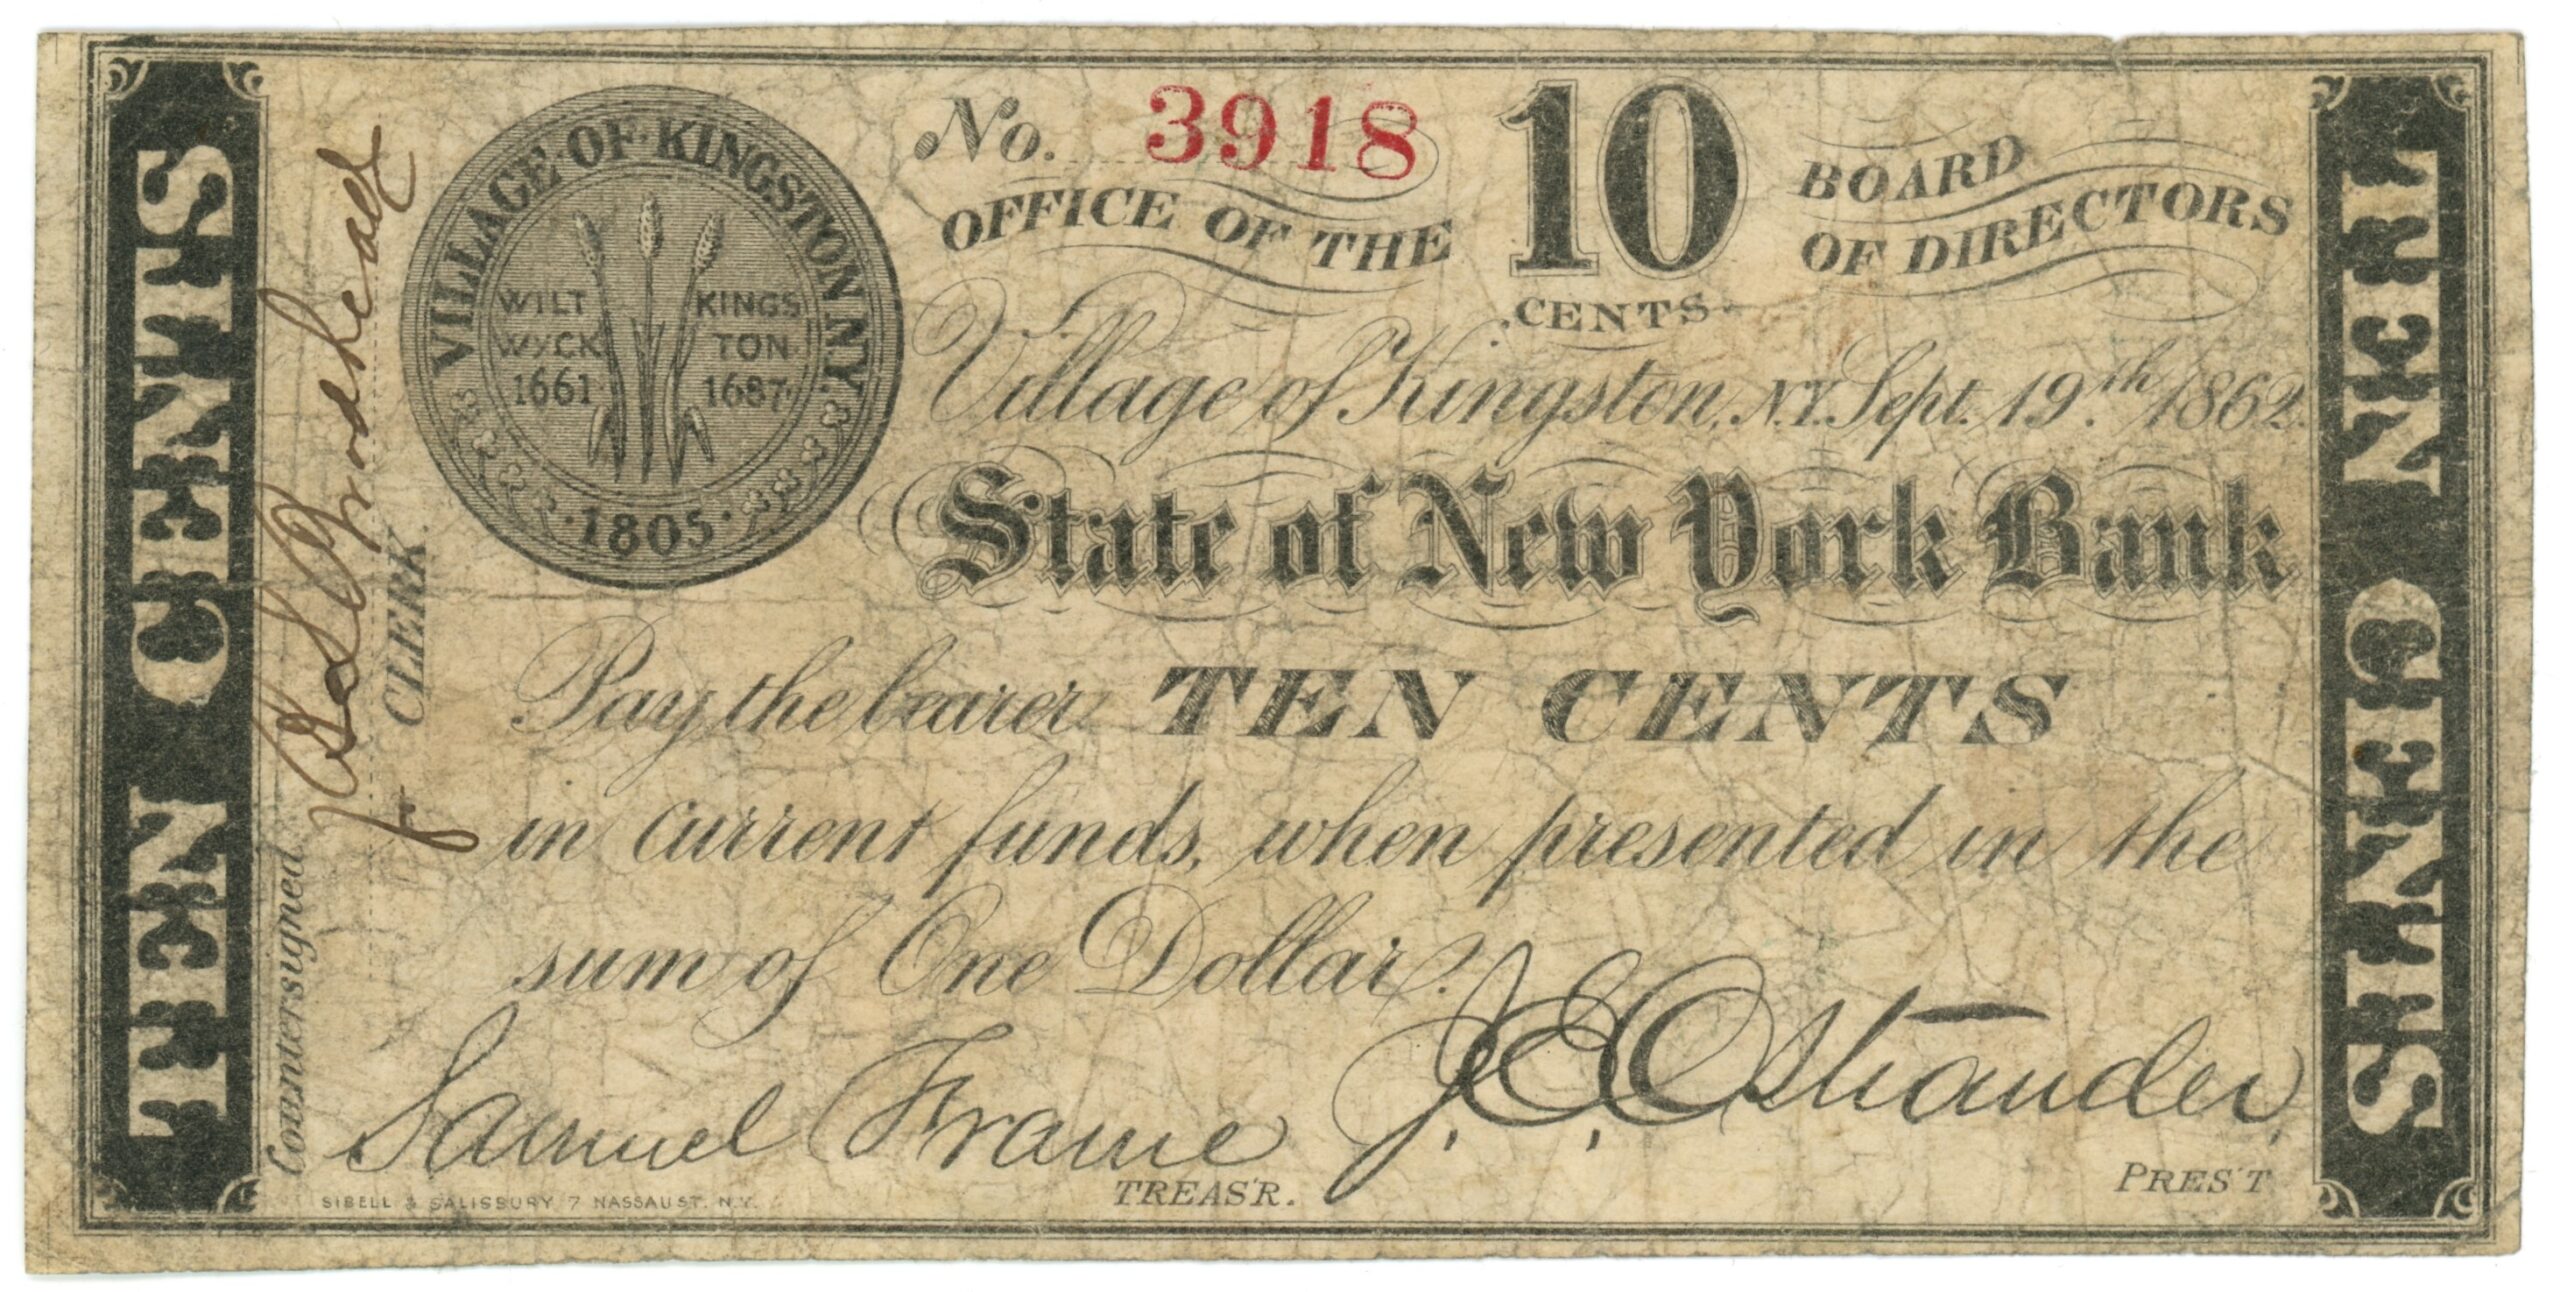 TEN CENTS
Countersigned
CLERK.
VILLAGE OF KINGSTON N.Y.
WILT
WYCK
1661
KINGS
TON
1687
1805
No. 3918
10
CENTS
OFFICE OF THE
BOARD
OF DIRECTORS
Village of Kingston, N.Y. Sept. 19th 1862
State of New York Bank
Pay the bearer TEN CENTS
in current funds, when presented in the
sum of One Dollar.
Samuel Frame
TREAS'R.
J. E. Ostrander,
PRES'T
SIBELL & SALISBURY 7 NASSAU ST. N.Y.
TEN CENTS